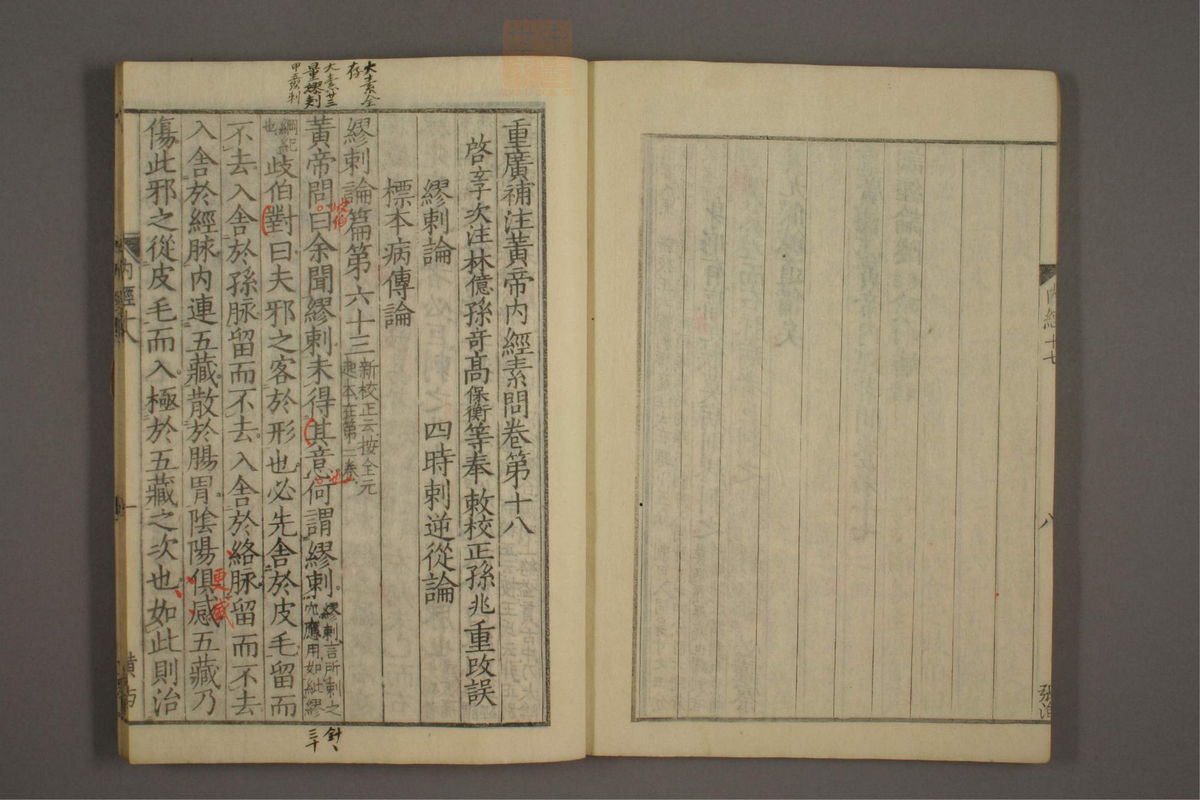 内經十七
八
重廣補注黃帝内經素問卷第十八
啓玄子次注林億孫竒髙保衡等奉敕校正孫兆重改誤
繆刺論
四時刺逆從論
標本病傳論
大素全
存
繆刺論篇第六十三
新校正云按全元
起本在第二卷
大素廿三
量繆刺
黃帝問曰余聞繆刺未得其意何謂繆刺
岐伯
也
繆刺言所刺之
穴應用如紕繆
綱紀
也
歧伯對曰夫邪之客於形也必先舍於皮毛留而
不去入舍於孫脉留而不去入舍於絡脉留而不去
入舍於經脉内連五藏散於腸胃陰陽俱感五藏乃
更盛
傷此邪之從皮毛而入極於五藏之次也如此則治
内經十八
一